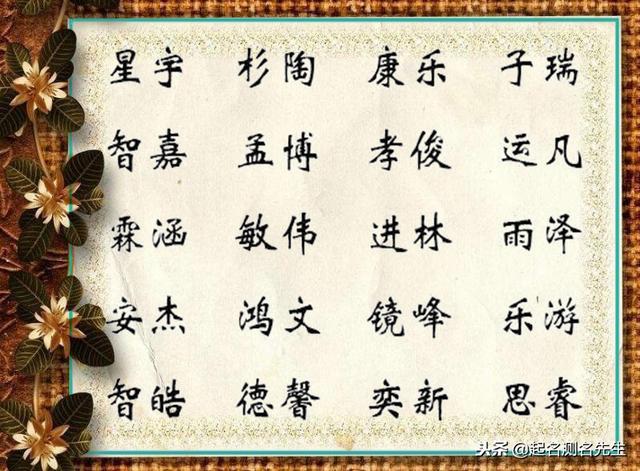 星宇 杉陶 康乐 子瑞
智嘉 孟博 孝俊 运凡
霖涵 敏伟 进林 雨泽
安杰 鸿文 镜峰 乐游
智皓 德馨 奕新 思睿
头条@起名测名先生